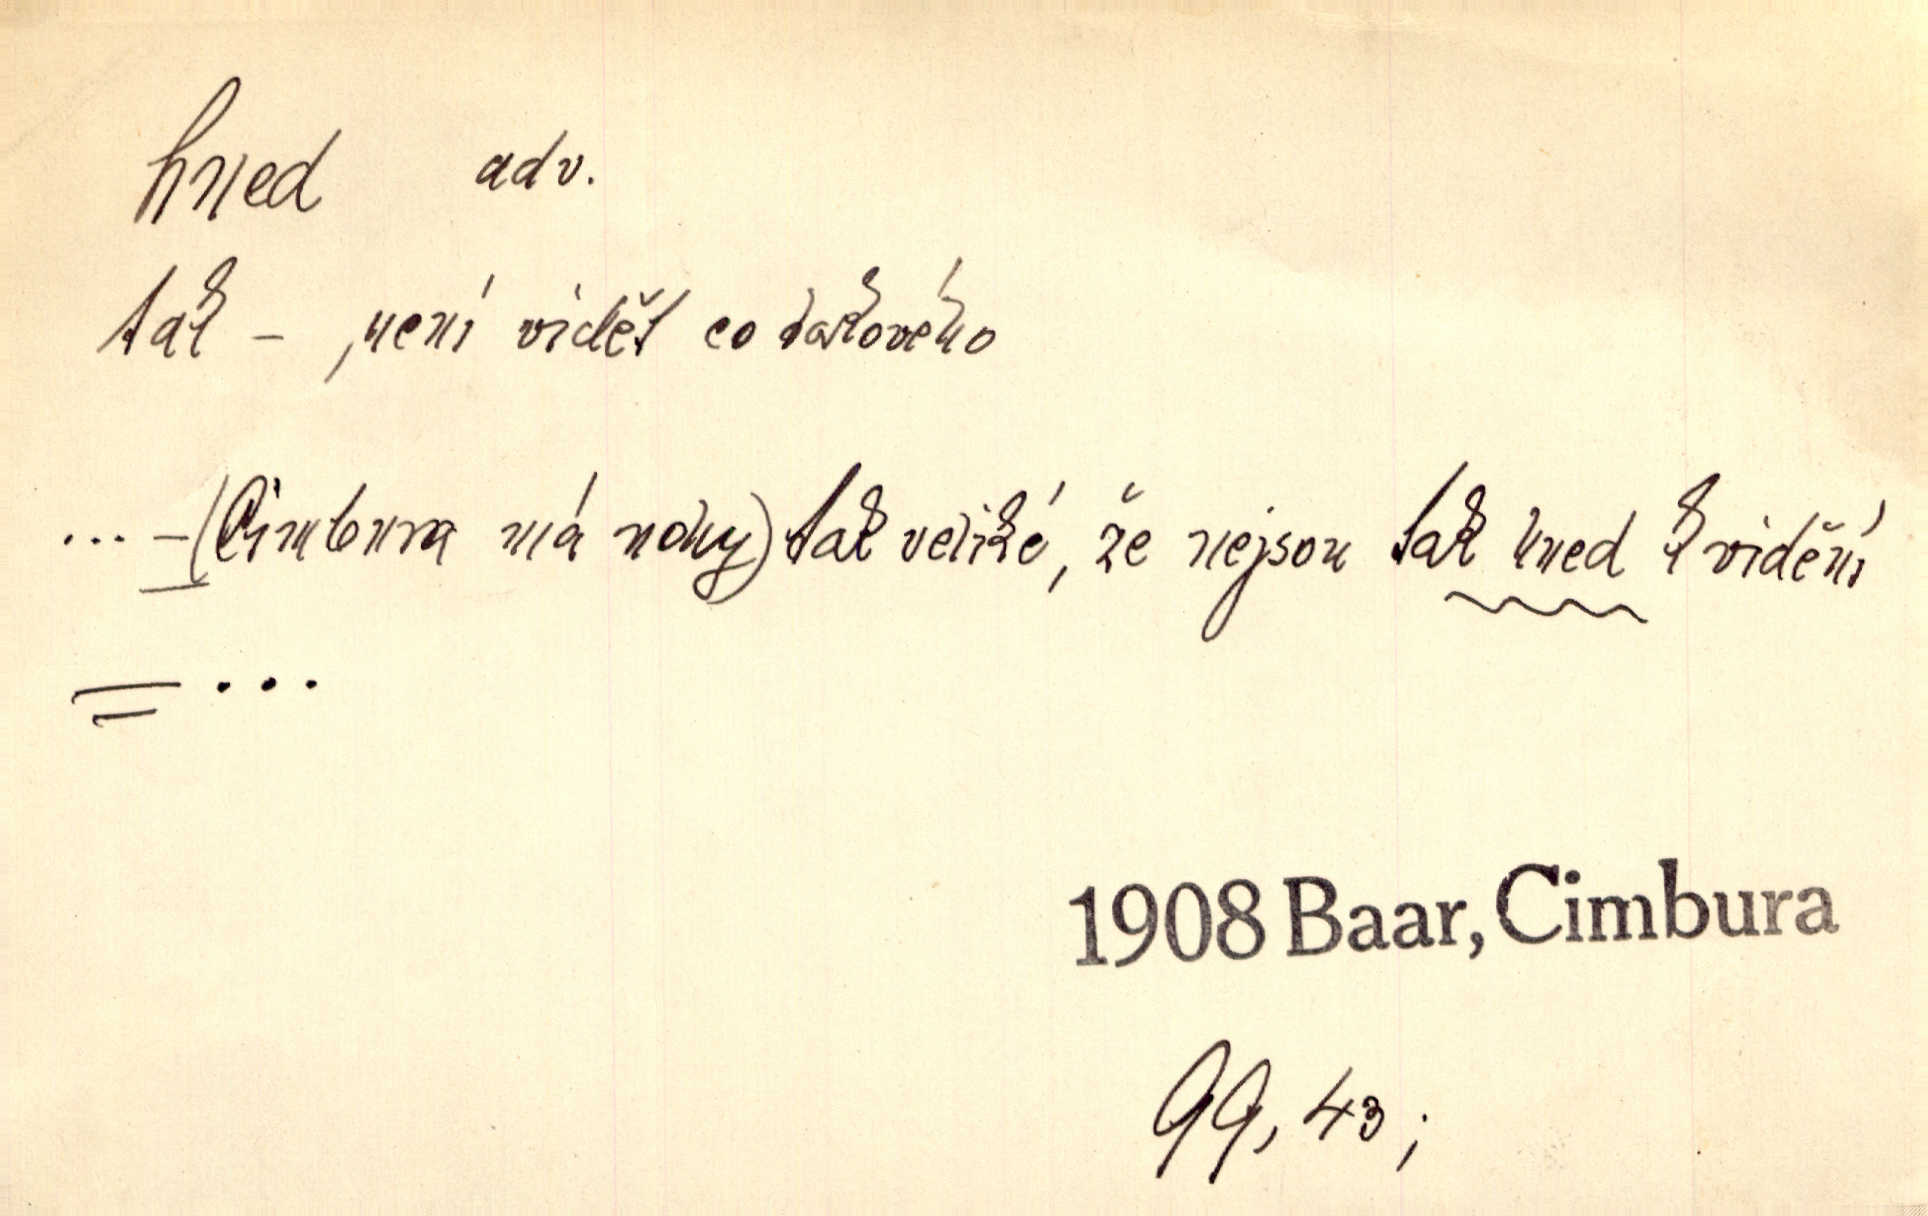 hned adv.
tak – ‚není vidět co takového
... – (Cimbura má nohy) tak veliké, že nejsou tak hned k vidění
= ...
1908 Baar, Cimbura
99, 43 ;